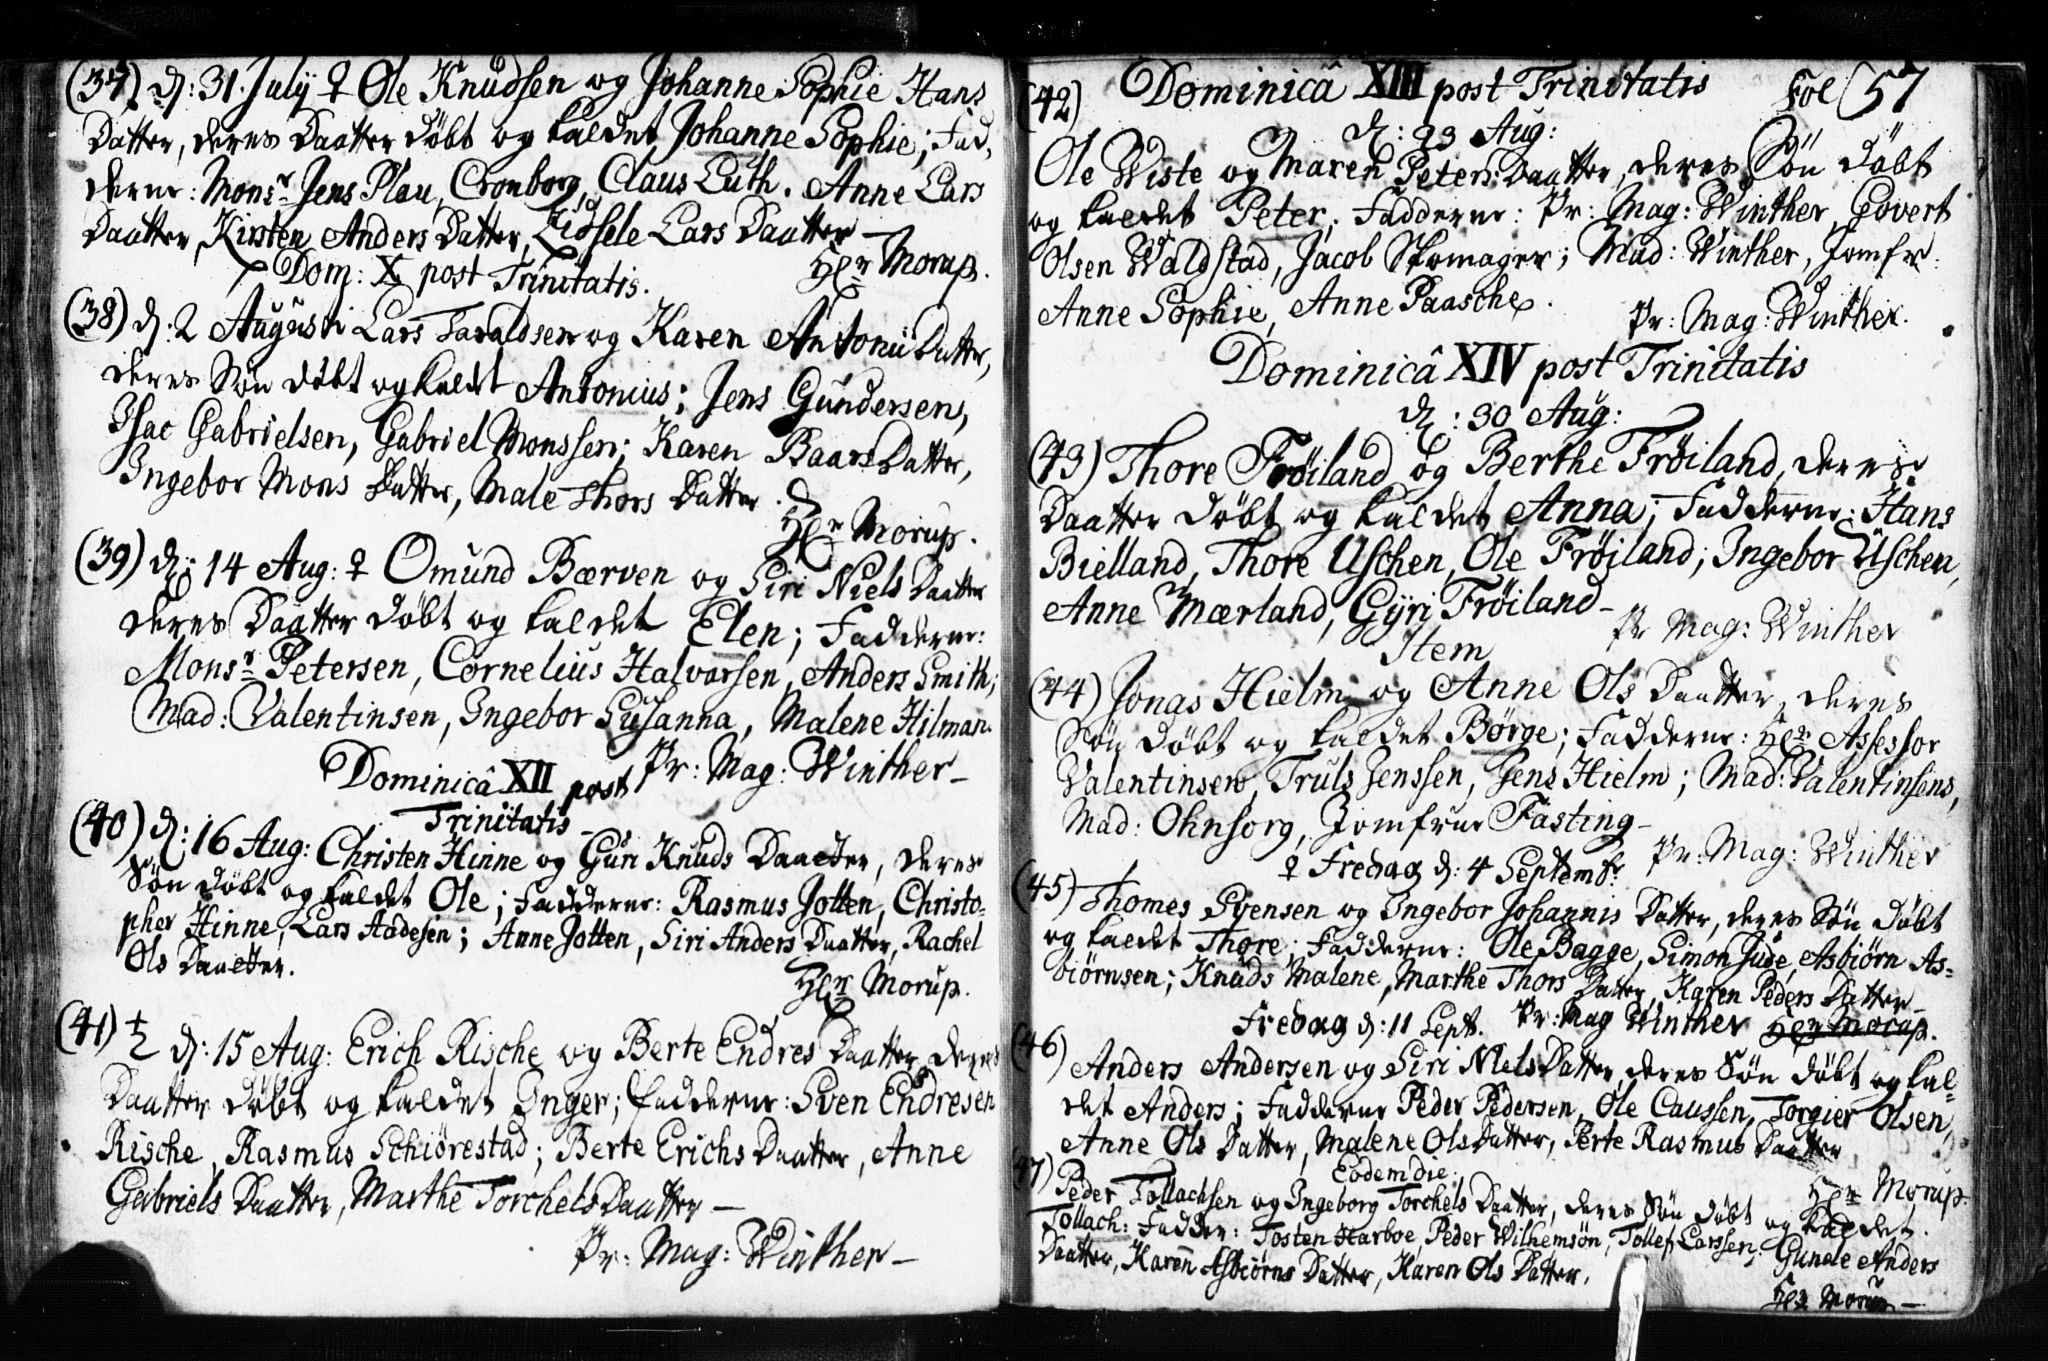 (37) d: 31. July ♀ Ole Knudsen og Johanne Sophie Hans
Datter, deres Daatter døbt og kaldet Johanne Sophie; Fad,
derne: Monsr Jens Plau, Cronborg, Claus Luth. Anne Lars
Daatter, Kirsten Anders Datter, Zidsele Lars Daatter –
Hr Morup.
Dom: X post Trinitatis.
(38) d: 2 Augusti Lars Taraldsen og Karen Antonii Datter,
deres Søn døbt og kaldet Antonius; Jens Gundersen,
Isac Gabrielsen, Gabriel Monssen; Karen Baars Datter,
Ingebor Mons Datter, Male Thors Datter.
Hr Morup.
(39) d: 14 Aug: ♀ Omund Bærven og Siri Niels Daatter
deres Daatter døbt og kaldet Elen; Fadderne:
Monsr Petersen, Cornelius Halvorsen, Anders Smith;
Mad: Valentinsen, Ingebor Susanna, Malene Hilman.
Pr: Mag: Winther –
Dominicâ XII post
Trinitatis –
(40) d: 16 Aug: Christen Hinne og Guri Knuds Daatter, deres
Søn døbt og kaldet Ole; Fadderne: Rasmus Jotten, Christo=
pher Hinne, Lars Aadesen; Anne Jotten, Siri Anders Daatter, Rachel
Ols Daatter.
Hr Morup.
(41) ♄ d: 15 Aug: Erich Rische og Berte Endres Daatter, deres
Daatter døbt og kaldet Inger; Fadderne: Sven Endresen
Rische, Rasmus Schiørestad; Berte Erichs Daatter, Anne
Gabriels Daatter, Marthe Torchels Daatter –
Pr: Mag: Winther –
Dominicâ XIII post Trinitatis
Fol (57
(42)
d: 23 Aug:
Ole Wiste og Maren Peters Daatter, deres Søn døbt
og kaldet Peter; Fadderne: Pr: Mag: Winther, Govert
Olsen Waldstad, Jacob Skomager; Mad: Winther, Jomfr:
Anne Sophie, Anne Paasche.
Pr: Mag: Winther.
Dominicâ XIV post Trinitatis
d: 30 Aug:
(43) Thore Frøiland og Berthe Frøiland, deres
Daatter døbt og kaldet Anna; Fadderne: Hans
Bielland, Thore Uschen, Ole Frøiland; Ingebor Uschen,
Anne Mærland, Gyri Frøiland –
Pr Mag: Winther
Item
(44) Jonas Hielm og Anne Ols Daatter, deres
Søn døbt og kaldet Børge; Fadderne: Hr Assessor
Valentinsen, Truls Jenssen, Jens Hielm; Mad: Valentinsens,
Mad: Ohnsorg, Jomfrue Fasting –
Pr: Mag: Winther
♀ Fredag d: 4 Septembr
(45) Thomes Svensen og Ingebor Johannis Datter, deres Søn døbt
og kaldet Thore; Fadderne: Ole Bagge, Simon Jude, Asbiørn As=
biørnsen; Knuds Malene, Marthe Thors Datter, Karen Peders Datter –
Pr: Mag Winther Hr Morup.
Fredag d: 11 Sept.
(46) Anders Andersen og Siri Niels Datter, deres Søn døbt og kal=
det Anders; Fadderne Peder Pedersen, Ole Caussen, Torgier Olsen,
Anne Ols Datter, Malene Ols Datter, Berte Rasmus Daatter
Hr Morup.
Eodem die.
(47) Peder Tollachsen og Ingeborg Torchels Daatter, deres Søn døbt og kaldet
Tollach: Fadder: Tosten Harboe, Peder Wilhemsøn, Tollef Larssen; Gunele Anders
Daatter, Karen Asbiørns Datter, Karen Ols Datter.
Hr Morup –